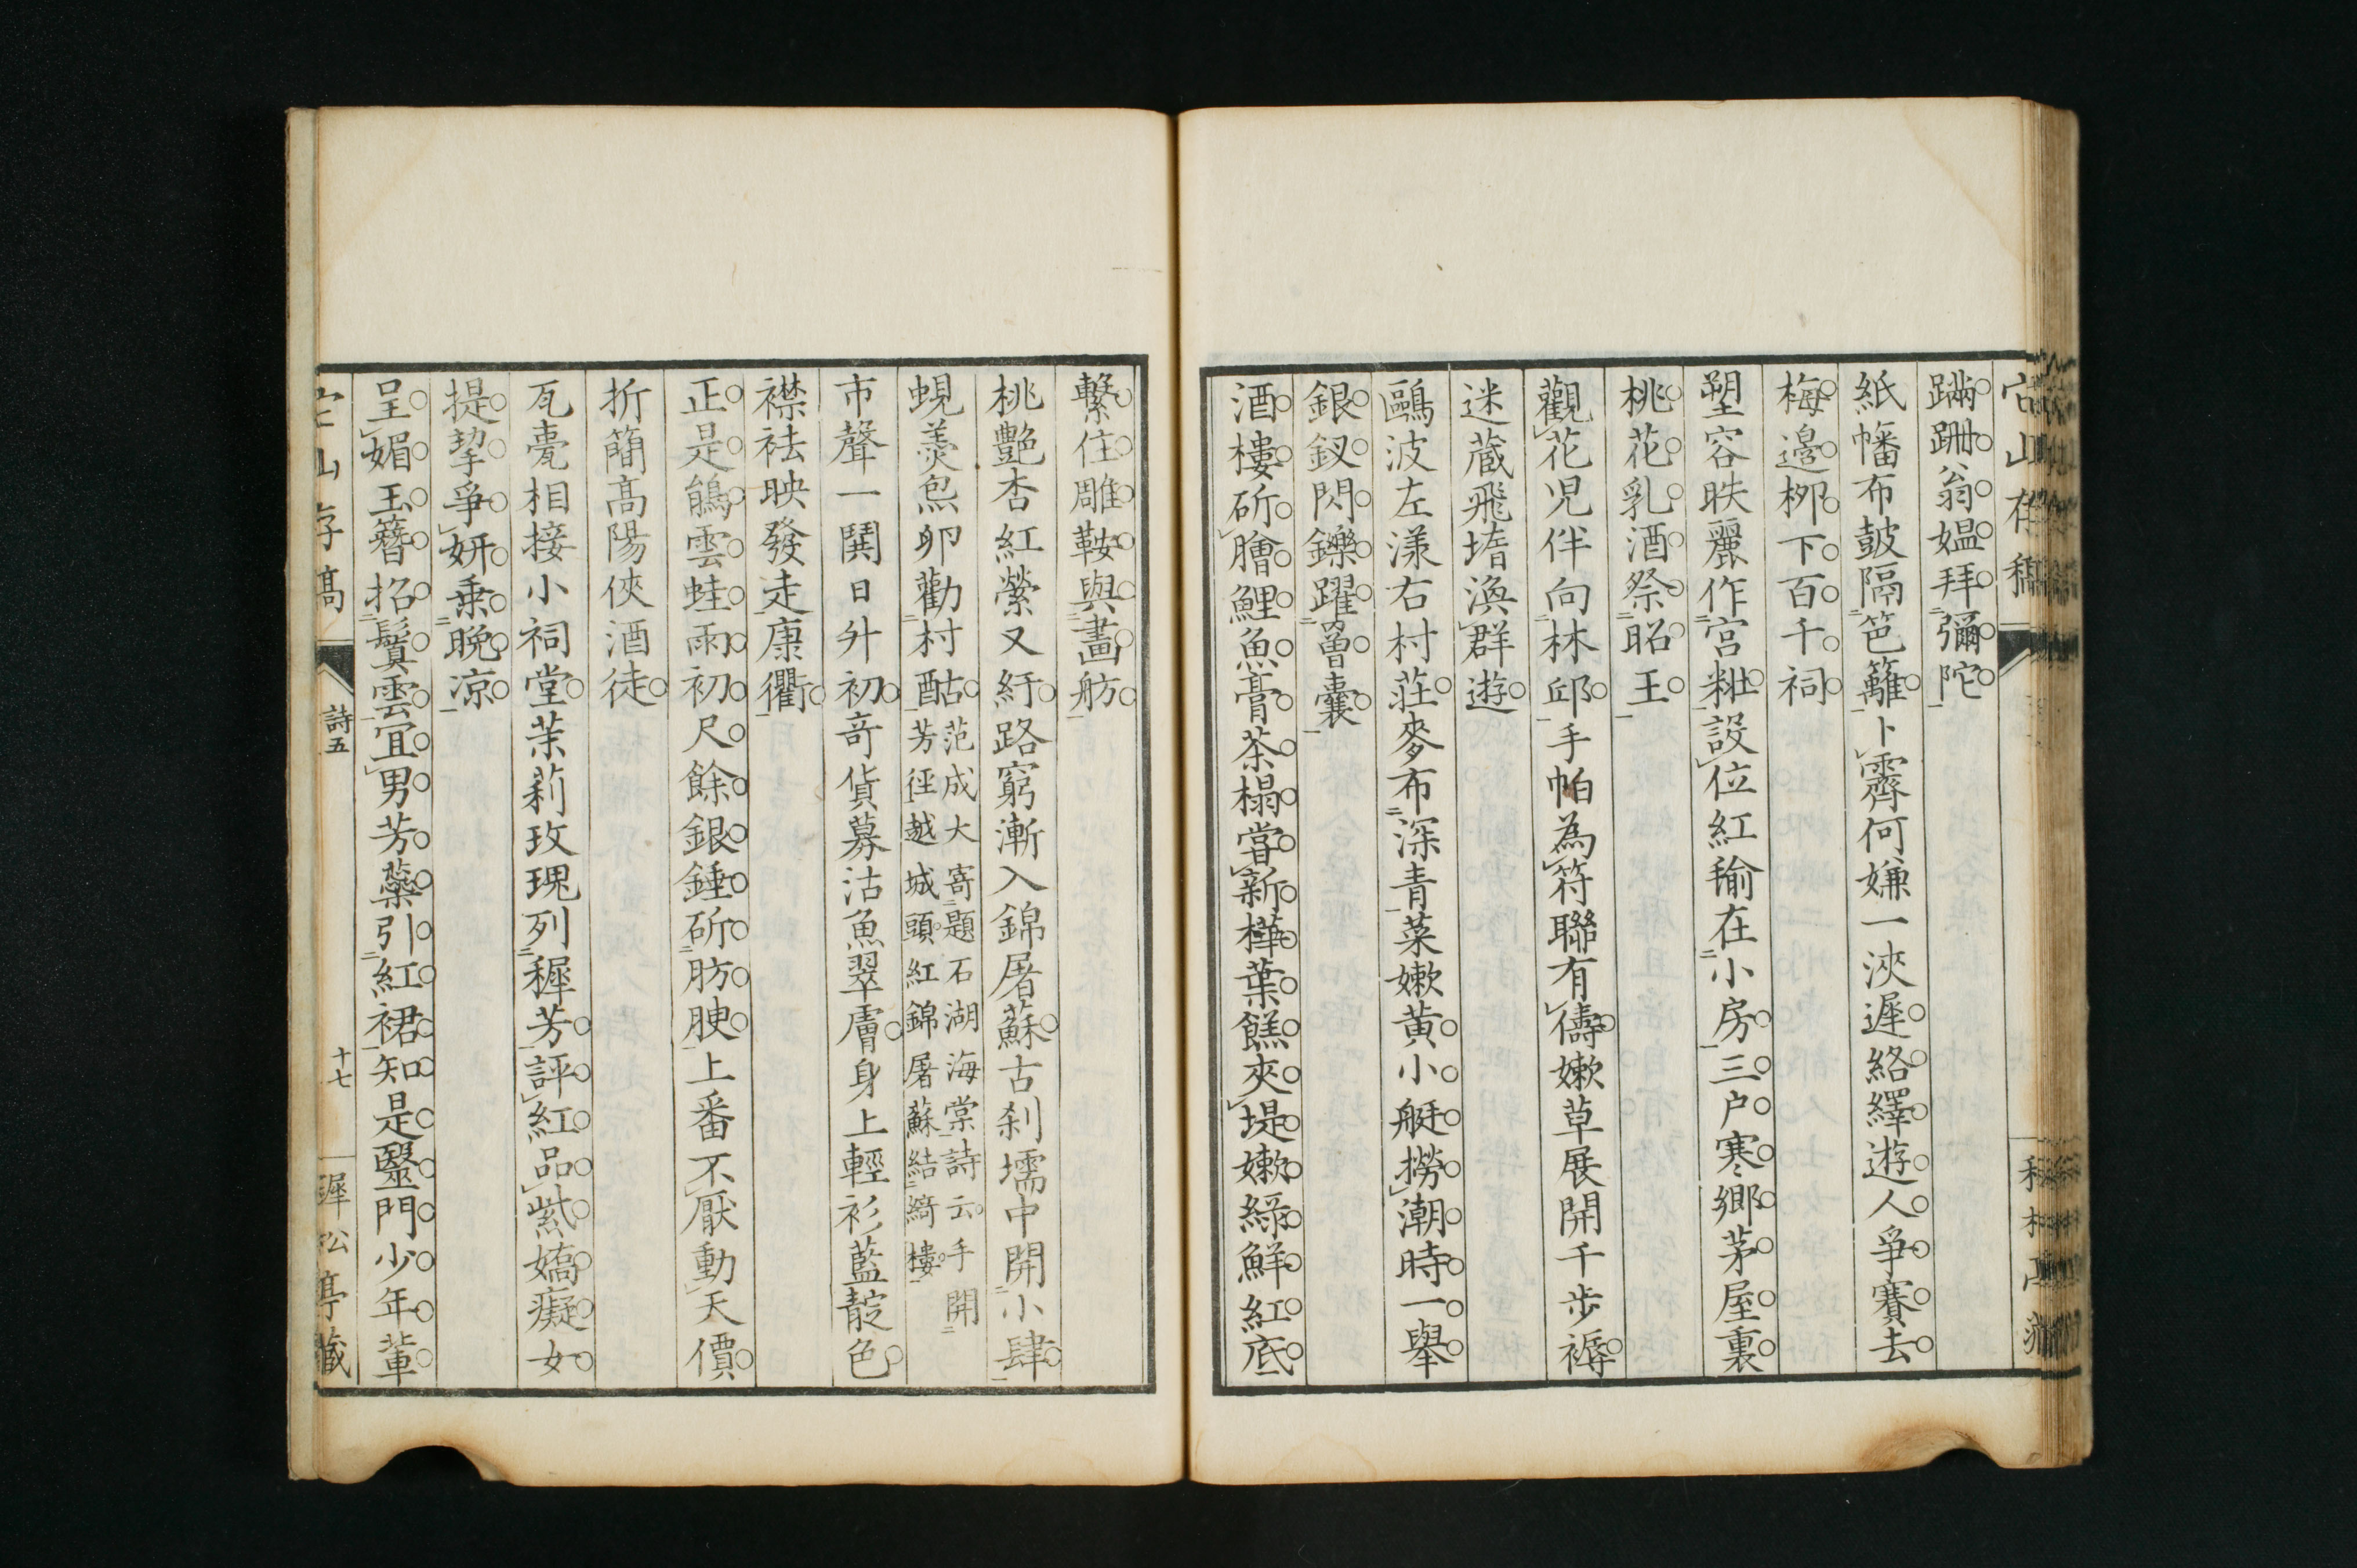 蹣跚翁媼拜彌陀
紙幡布皷隔笆籬卜霽何嫌一浹遲絡繹遊人爭賽去
梅邊栁下百千祠
塑容昳麗作宮粧設位紅輸在小房三户寒鄉茅屋裏
桃花乳酒祭昭王
觀花児伴向林邱手帕為符聯有儔嫩草展開千步褥
迷蔵飛堶渙群遊
鷗波左漾右村莊麥布深青菜嫩黃小艇撈潮時一舉
銀釵閃鑠躍罾囊
酒樓斫膾鯉魚膏茶榻嘗新樺葉餻夾堤嫩綠鮮紅底
繫住雕鞍與畫舫
桃艷杏紅縈又紆路窮漸入錦屠蘇古刹壖中開小肆
蜆羮炰卵勸村酤
范成大寄題石湖海棠詩云手開
芳徑越城頭紅錦屠蘇結綺樓
市聲一鬨日升初竒貨募沽魚翠膚身上輕衫藍靛色
襟袪映發走康衢
正是鵃雲蛙雨初尺餘銀鍾斫肪腴上番不厭動天價
折簡高陽俠酒徒
瓦甍相接小祠堂茉莉玫瑰列穉芳評紅品紫嬌癡女
提挈爭姸乗晚凉
呈媚玉簪招鬢雲宜男芳蘂引紅裙知是毉門少年輩
詩五
十七